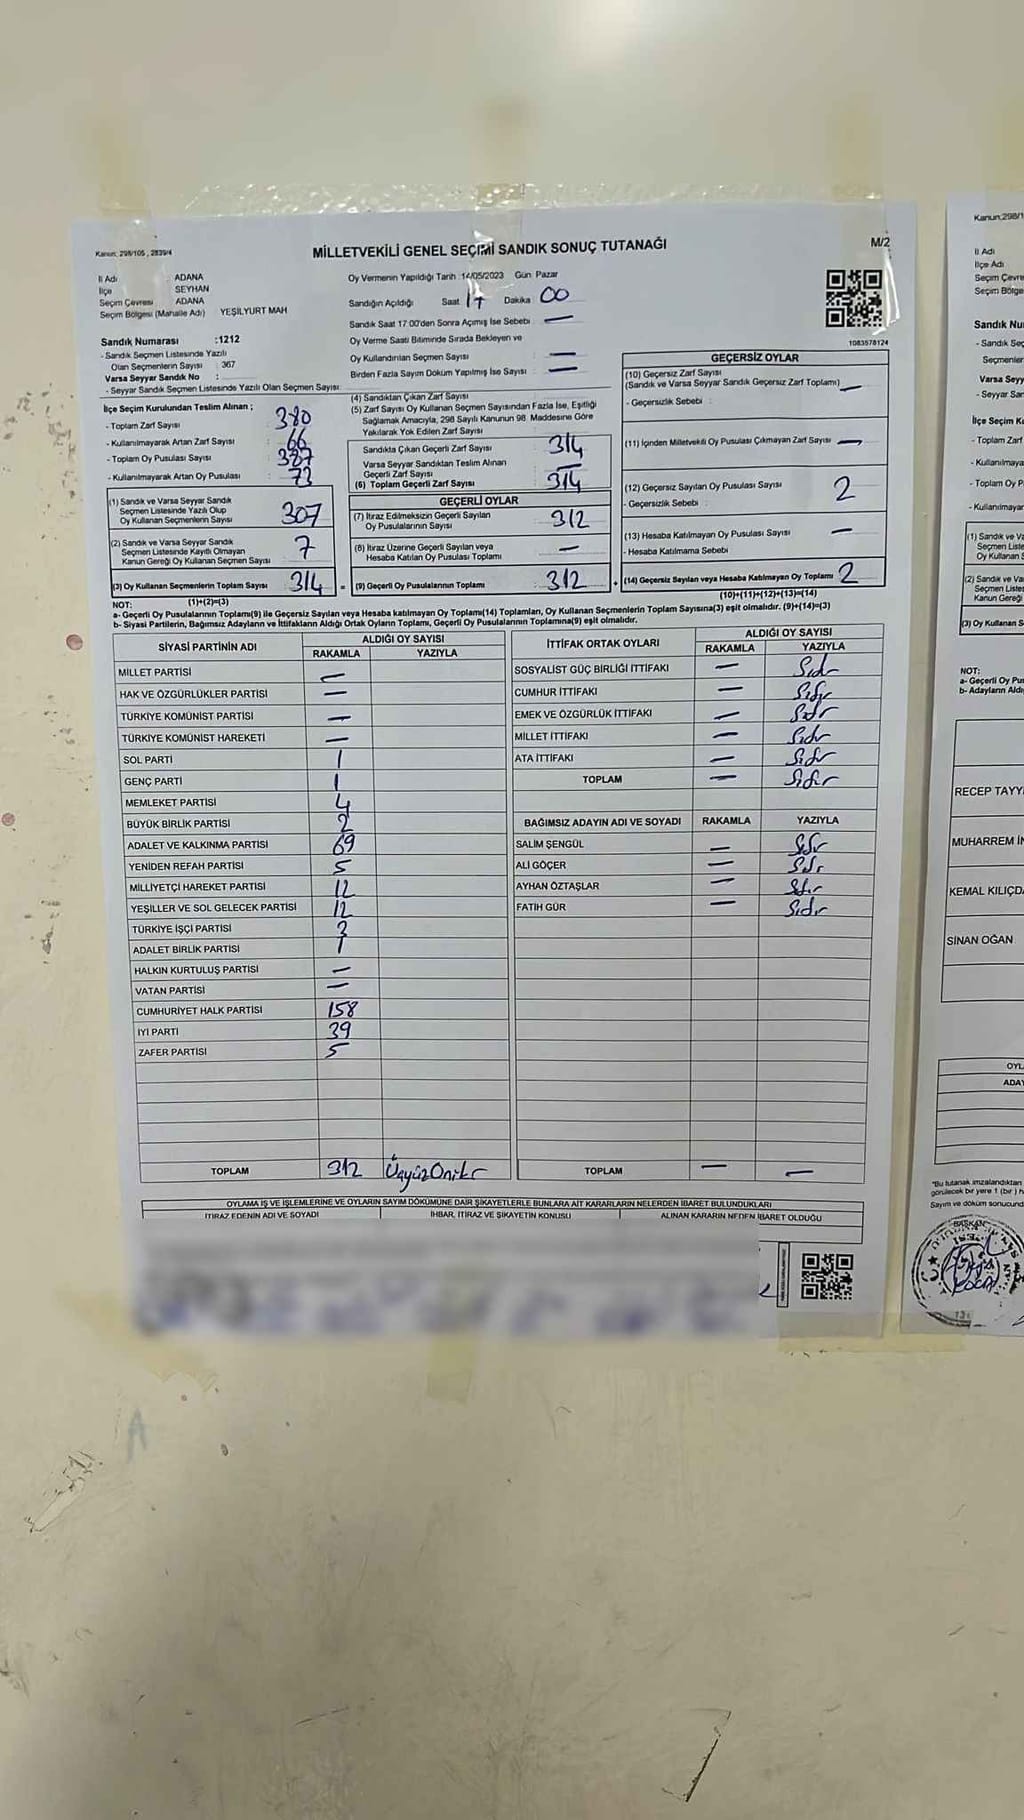 Kanun: 298/105, 2839/4
MİLLETVEKİLİ GENEL SEÇİMİ SANDIK SONUÇ TUTANAĞI
M/2
İl Adı ADANA
İlçe SEYHAN
Seçim Çevresi ADANA
Seçim Bölgesi (Mahalle Adı) YEŞİLYURT MAH
Oy Vermenin Yapıldığı Tarih :14/05/2023 Gün Pazar
Sandığın Açıldığı Saat 17 Dakika 00
Sandık Saat 17:00'den Sonra Açımış İse Sebebi : —
Oy Verme Saati Bitiminde Sırada Bekleyen ve
Oy Kullandırılan Seçmen Sayısı : —
Birden Fazla Sayım Döküm Yapılmış İse Sayısı : —
1083578124
Sandık Numarası :1212
- Sandık Seçmen Listesinde Yazılı
Olan Seçmenlerin Sayısı : 367
Varsa Seyyar Sandık No :
- Seyyar Sandık Seçmen Listesinde Yazılı Olan Seçmen Sayısı:
İlçe Seçim Kurulundan Teslim Alınan ;
- Toplam Zarf Sayısı : 380
- Kullanılmayarak Artan Zarf Sayısı : 66
- Toplam Oy Pusulası Sayısı : 387
- Kullanılmayarak Artan Oy Pusulası : 73
(1) Sandık ve Varsa Seyyar Sandık
Seçmen Listesinde Yazılı Olup
Oy Kullanan Seçmenlerin Sayısı 307
(2) Sandık ve Varsa Seyyar Sandık
Seçmen Listesinde Kayıtlı Olmayan
Kanun Gereği Oy Kullanan Seçmen Sayısı 7
(3) Oy Kullanan Seçmenlerin Toplam Sayısı 314
(1)+(2)=(3)
(4) Sandıktan Çıkan Zarf Sayısı
(5) Zarf Sayısı Oy Kullanan Seçmen Sayısından Fazla İse, Eşitliği
Sağlamak Amacıyla, 298 Sayılı Kanunun 98. Maddesine Göre
Yakılarak Yok Edilen Zarf Sayısı
Sandıkta Çıkan Geçerli Zarf Sayısı 314
Varsa Seyyar Sandıktan Teslim Alınan
Geçerli Zarf Sayısı —
(6) Toplam Geçerli Zarf Sayısı 314
GEÇERLİ OYLAR
(7) İtiraz Edilmeksizin Geçerli Sayılan
Oy Pusulalarının Sayısı 312
(8) İtiraz Üzerine Geçerli Sayılan veya
Hesaba Katılan Oy Pusulası Toplamı —
= (9) Geçerli Oy Pusulalarının Toplamı 312 +
GEÇERSİZ OYLAR
(10) Geçersiz Zarf Sayısı
(Sandık ve Varsa Seyyar Sandık Geçersiz Zarf Toplamı) —
- Geçersizlik Sebebi :
(11) İçinden Milletvekili Oy Pusulası Çıkmayan Zarf Sayısı —
(12) Geçersiz Sayılan Oy Pusulası Sayısı 2
- Geçersizlik Sebebi :
(13) Hesaba Katılmayan Oy Pusulası Sayısı —
- Hesaba Katılmama Sebebi
(14) Geçersiz Sayılan veya Hesaba Katılmayan Oy Toplamı 2
(10)+(11)+(12)+(13)=(14)
NOT:
a- Geçerli Oy Pusulalarının Toplamı(9) ile Geçersiz Sayılan veya Hesaba katılmayan Oy Toplamı(14) Toplamları, Oy Kullanan Seçmenlerin Toplam Sayısına(3) eşit olmalıdır. (9)+(14)=(3)
b- Siyasi Partilerin, Bağımsız Adayların ve İttifakların Aldığı Ortak Oyların Toplamı, Geçerli Oy Pusulalarının Toplamına(9) eşit olmalıdır.
SİYASİ PARTİNİN ADI ALDIĞI OY SAYISI
RAKAMLA YAZIYLA
MİLLET PARTİSİ —
HAK VE ÖZGÜRLÜKLER PARTİSİ —
TÜRKİYE KOMÜNİST PARTİSİ —
TÜRKİYE KOMÜNİST HAREKETİ —
SOL PARTİ 1
GENÇ PARTİ 1
MEMLEKET PARTİSİ 4
BÜYÜK BİRLİK PARTİSİ 2
ADALET VE KALKINMA PARTİSİ 69
YENİDEN REFAH PARTİSİ 5
MİLLİYETÇİ HAREKET PARTİSİ 12
YEŞİLLER VE SOL GELECEK PARTİSİ 12
TÜRKİYE İŞÇİ PARTİSİ 3
ADALET BİRLİK PARTİSİ 1
HALKIN KURTULUŞ PARTİSİ —
VATAN PARTİSİ —
CUMHURİYET HALK PARTİSİ 158
İYİ PARTİ 39
ZAFER PARTİSİ 5
TOPLAM 312 Üçyüz Oniki
İTTİFAK ORTAK OYLARI ALDIĞI OY SAYISI
RAKAMLA YAZIYLA
SOSYALİST GÜÇ BİRLİĞİ İTTİFAKI — Sıfır
CUMHUR İTTİFAKI — Sıfır
EMEK VE ÖZGÜRLÜK İTTİFAKI — Sıfır
MİLLET İTTİFAKI — Sıfır
ATA İTTİFAKI — Sıfır
TOPLAM — Sıfır
BAĞIMSIZ ADAYIN ADI VE SOYADI RAKAMLA YAZIYLA
SALİM ŞENGÜL — Sıfır
ALİ GÖÇER — Sıfır
AYHAN ÖZTAŞLAR — Sıfır
FATİH GÜR — Sıfır
TOPLAM — —
OYLAMA İŞ VE İŞLEMLERİNE VE OYLARIN SAYIM DÖKÜMÜNE DAİR ŞİKAYETLERLE BUNLARA AİT KARARLARIN NELERDEN İBARET BULUNDUKLARI
İTİRAZ EDENİN ADI VE SOYADI İHBAR, İTİRAZ VE ŞİKAYETİN KONUSU ALINAN KARARIN NEDEN İBARET OLDUĞU
Kanun:298/1
İl Adı
İlçe Adı
Seçim Çevre
Seçim Bölge
Sandık Nu
- Sandık Seç
Seçmenler
Varsa Seyy
- Sandık Seç
İlçe Seçim K
- Toplam Zarf
- Kullanılmaya
- Toplam Oy P
- Kullanılmayar
(1) Sandık ve Va
Seçmen Liste
Oy Kullanan
(2) Sandık ve Va
Seçmen Listes
Kanun Gereği
(3) Oy Kullanan Se
NOT:
a- Geçerli Oy Pu
b- Adayların Aldı
RECEP TAYY
MUHARREM İN
KEMAL KILIÇDA
SİNAN OĞAN
OYL
ADAY
"Bu tutanak imzalandıktan
görülecek bir yere 1 (bir) h
Sayım ve döküm sonucund
BAŞKAN